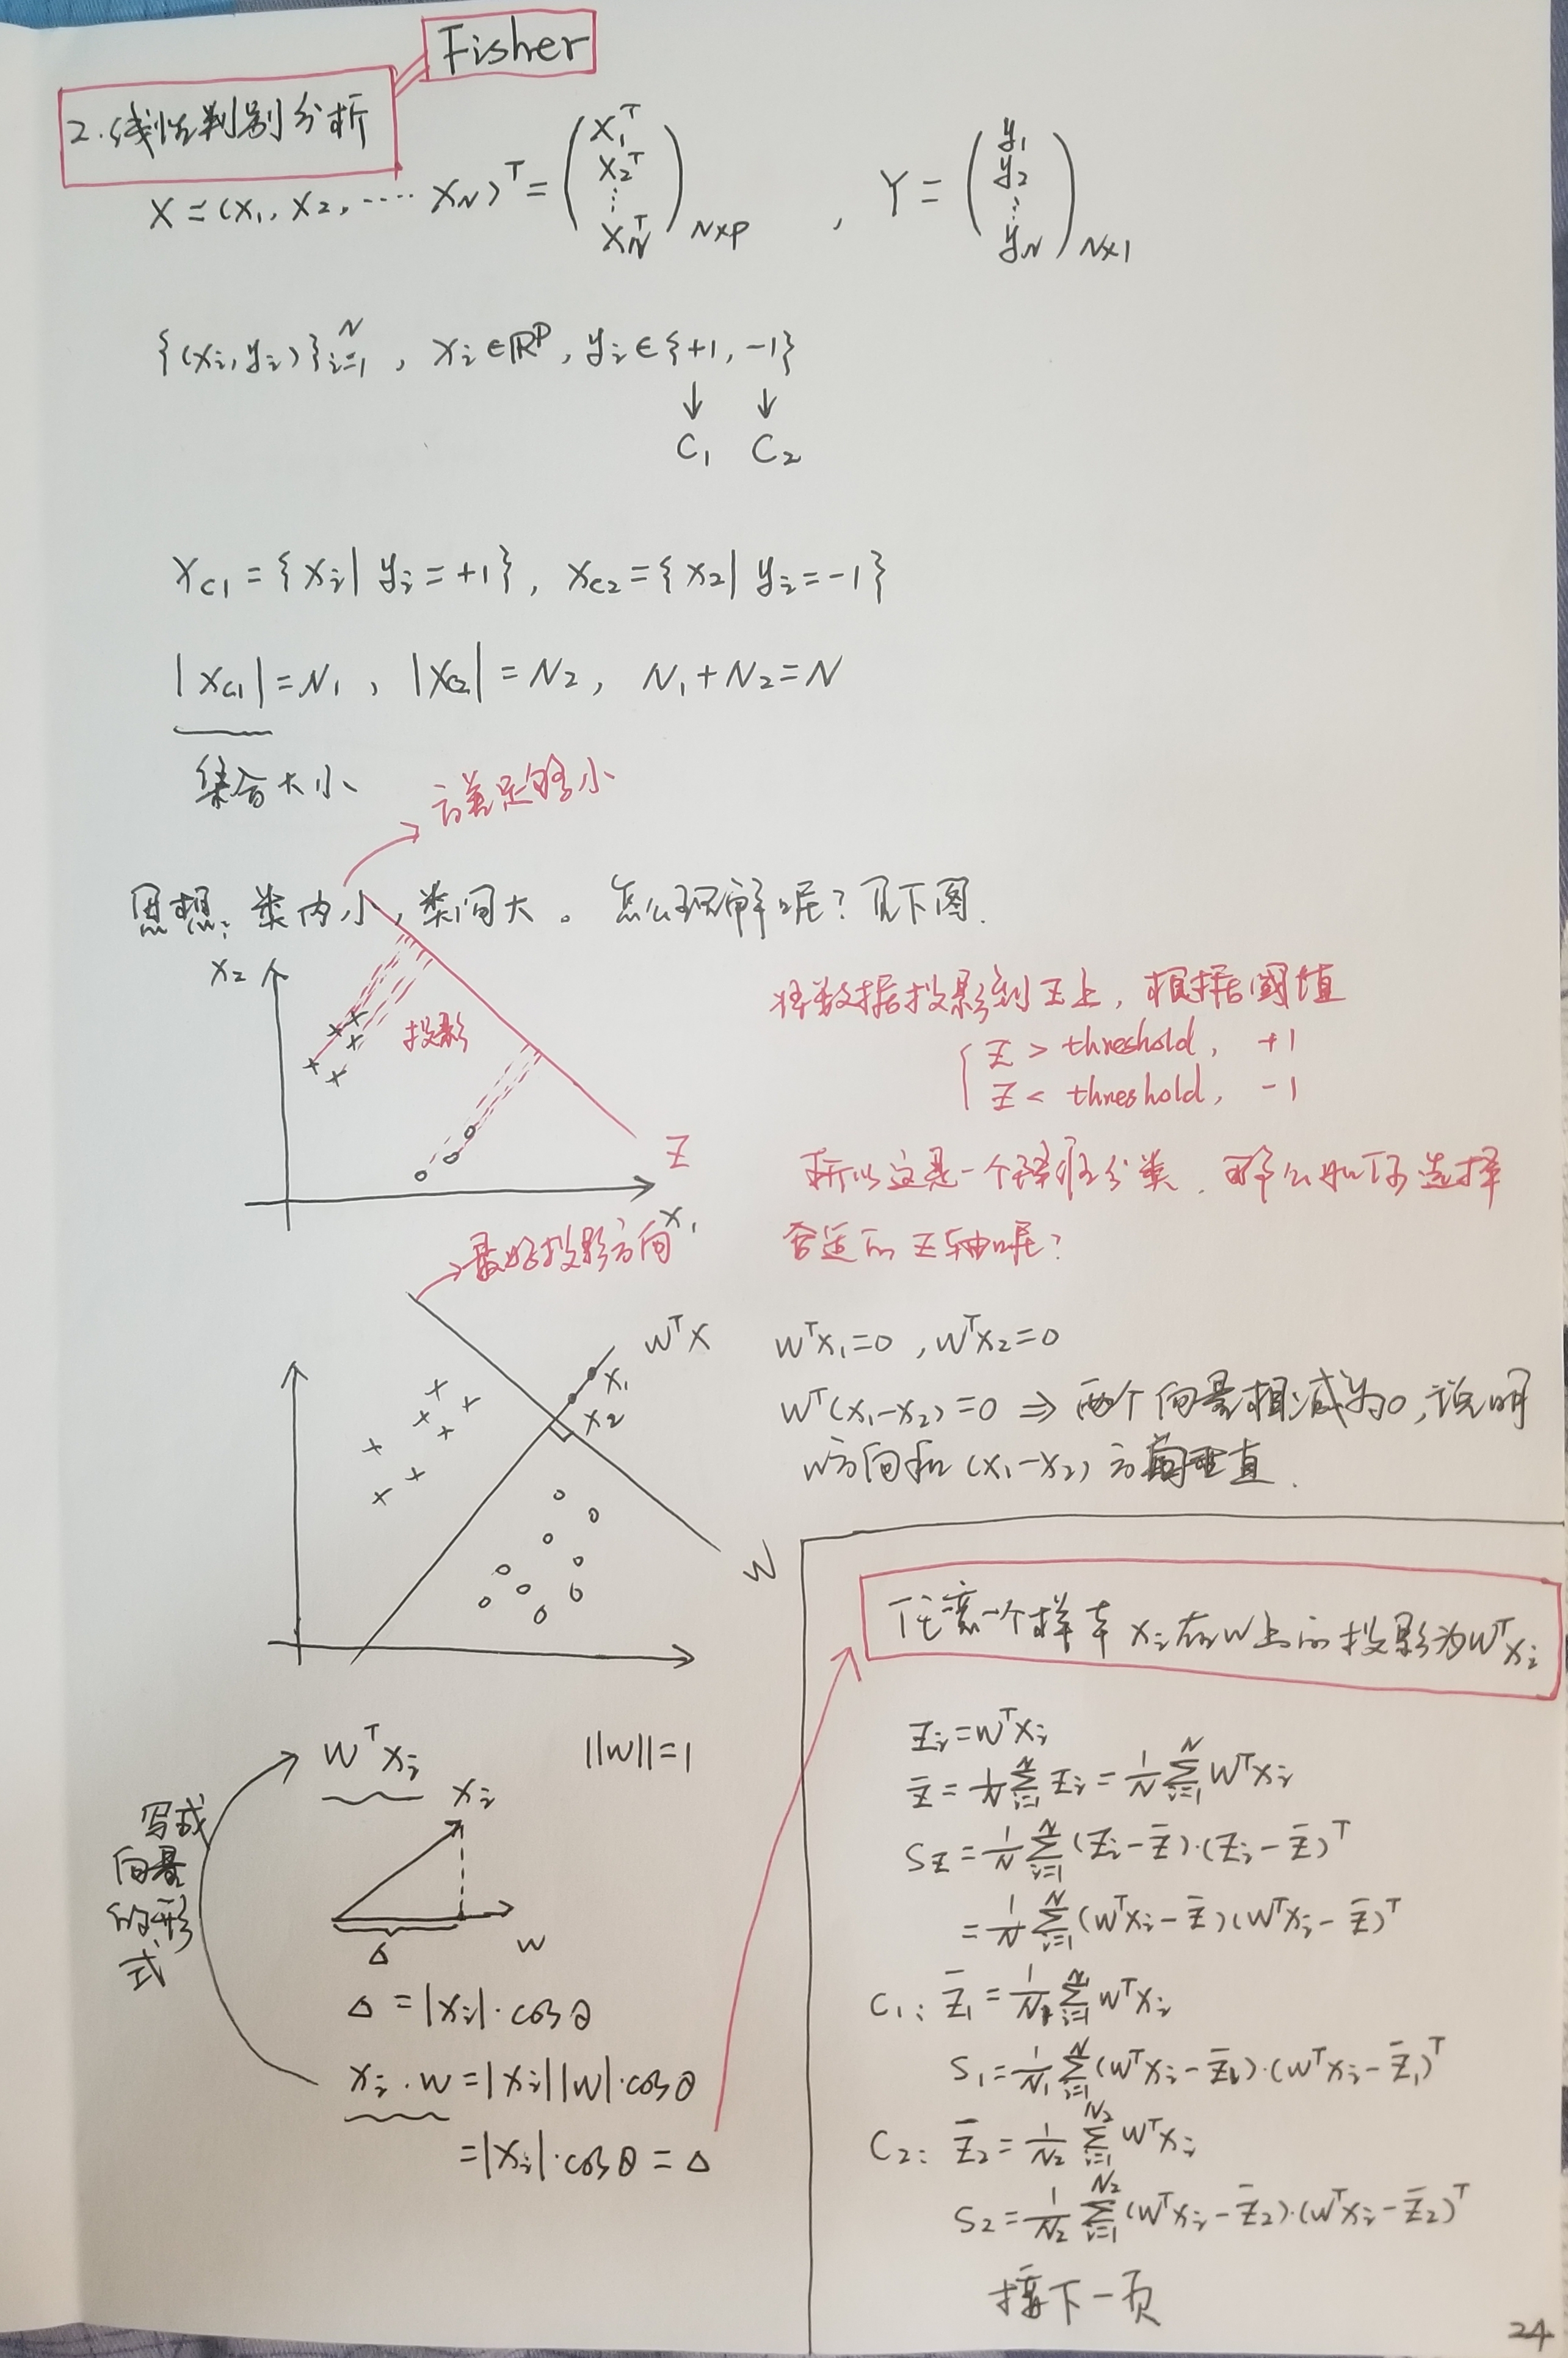 Fisher
2.线性判别分析
X = (x₁, x₂, ···· x_N)ᵀ = (x₁ᵀ x₂ᵀ ⋮ x_Nᵀ)_{N×P} , Y = (y₁ y₂ ⋮ y_N)_{N×1}
{(xᵢ, yᵢ)}ᵢ₌₁ᴺ , xᵢ∈ℝᴾ, yᵢ∈{+1, -1}
↓ ↓
C₁ C₂
x_{C1} = {xᵢ| yᵢ = +1}, x_{C2} = {x₂| yᵢ = -1}
|x_{C1}| = N₁ , |x_{C2}| = N₂, N₁+N₂=N
集合大小
方差足够小
思想: 类内小, 类间大。怎么理解呢? 见下图.
x₂
投影
Z
x₁
将数据投影到Z上, 根据阈值
{ Z > threshold, +1
Z < threshold, -1
所以这是一个 分类. 那么如何选择
合适的Z轴呢?
最好投影方向
WᵀX
x₁
x₂
W
Wᵀx₁=0 , Wᵀx₂=0
Wᵀ(x₁-x₂)=0 ⇒ 两个向量相减为0,说明
W方向和(x₁-x₂)方向垂直.
Wᵀxᵢ ||w||=1
xᵢ
写成
向量
的形
式
Δ
w
Δ = |xᵢ|·cosθ
xᵢ·w = |xᵢ||w|·cosθ
= |xᵢ|·cosθ = Δ
任意一个样本xᵢ在W上的投影为Wᵀxᵢ
Zᵢ = Wᵀxᵢ
Z̄ = 1/N ∑ᵢ₌₁ᴺ Zᵢ = 1/N ∑ᵢ₌₁ᴺ Wᵀxᵢ
S_Z = 1/N ∑ᵢ₌₁ᴺ (Zᵢ - Z̄)·(Zᵢ - Z̄)ᵀ
= 1/N ∑ᵢ₌₁ᴺ (Wᵀxᵢ - Z̄)(Wᵀxᵢ - Z̄)ᵀ
C₁: Z̄₁ = 1/N₁ ∑ᵢ₌₁^{N₁} Wᵀxᵢ
S₁ = 1/N₁ ∑ᵢ₌₁ᴺ (Wᵀxᵢ - Z̄₁)·(Wᵀxᵢ - Z̄₁)ᵀ
C₂: Z̄₂ = 1/N₂ ∑ᵢ₌₁^{N₂} Wᵀxᵢ
S₂ = 1/N₂ ∑ᵢ₌₁^{N₂} (Wᵀxᵢ - Z̄₂)·(Wᵀxᵢ - Z̄₂)ᵀ
接下一页
24